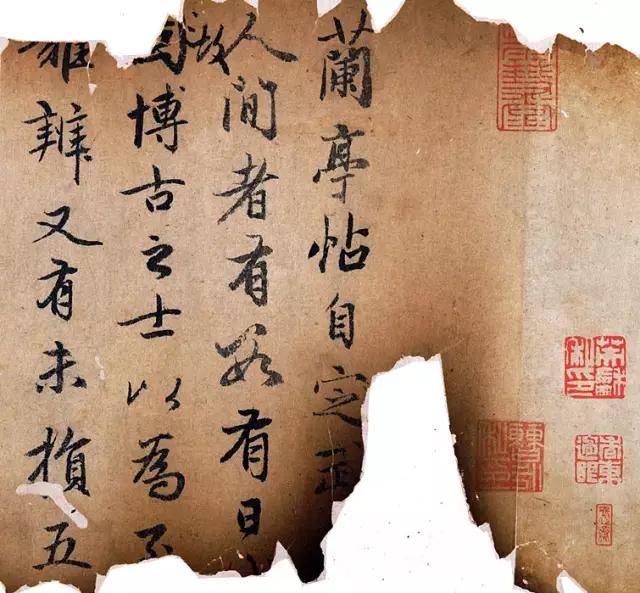 蘭亭帖自定武
人間者有數有日
故博古之士以為至
難辨又有未損五